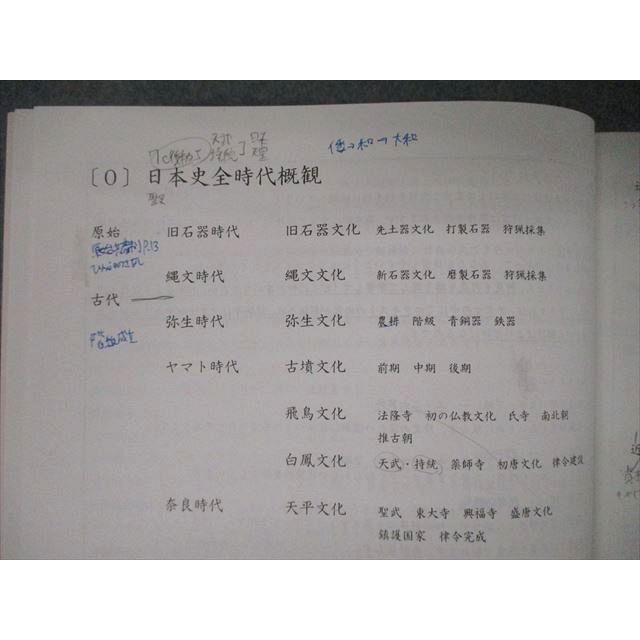 倭→和→大和
〔0〕日本史全時代概観
原始 旧石器時代 旧石器文化 先土器文化 打製石器 狩猟採集
縄文時代 縄文文化 新石器文化 磨製石器 狩猟採集
古代
弥生時代 弥生文化 農耕 階級 青銅器 鉄器
ヤマト時代 古墳文化 前期 中期 後期
飛鳥文化 法隆寺 初の仏教文化 氏寺 南北朝
推古朝
白鳳文化 天武・持統 薬師寺 初唐文化 律令建設
奈良時代 天平文化 聖武 東大寺 興福寺 盛唐文化
鎮護国家 律令完成